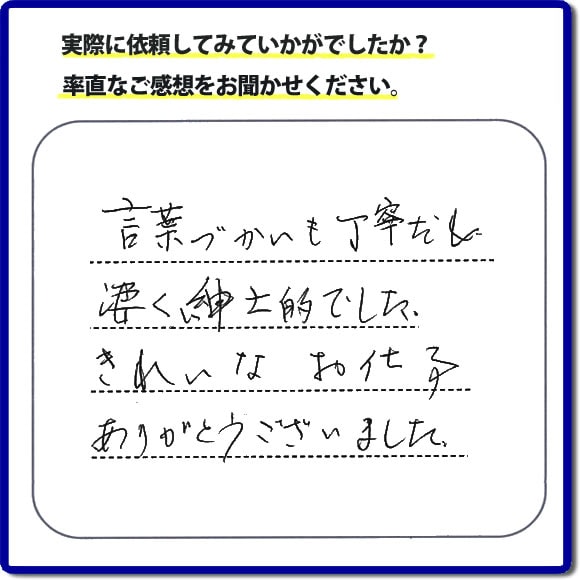 実際に依頼してみていかがでしたか？
率直なご感想をお聞かせください。
言葉づかいも丁寧だし
凄く紳士的でした。
きれいなお仕事
ありがとうございました。